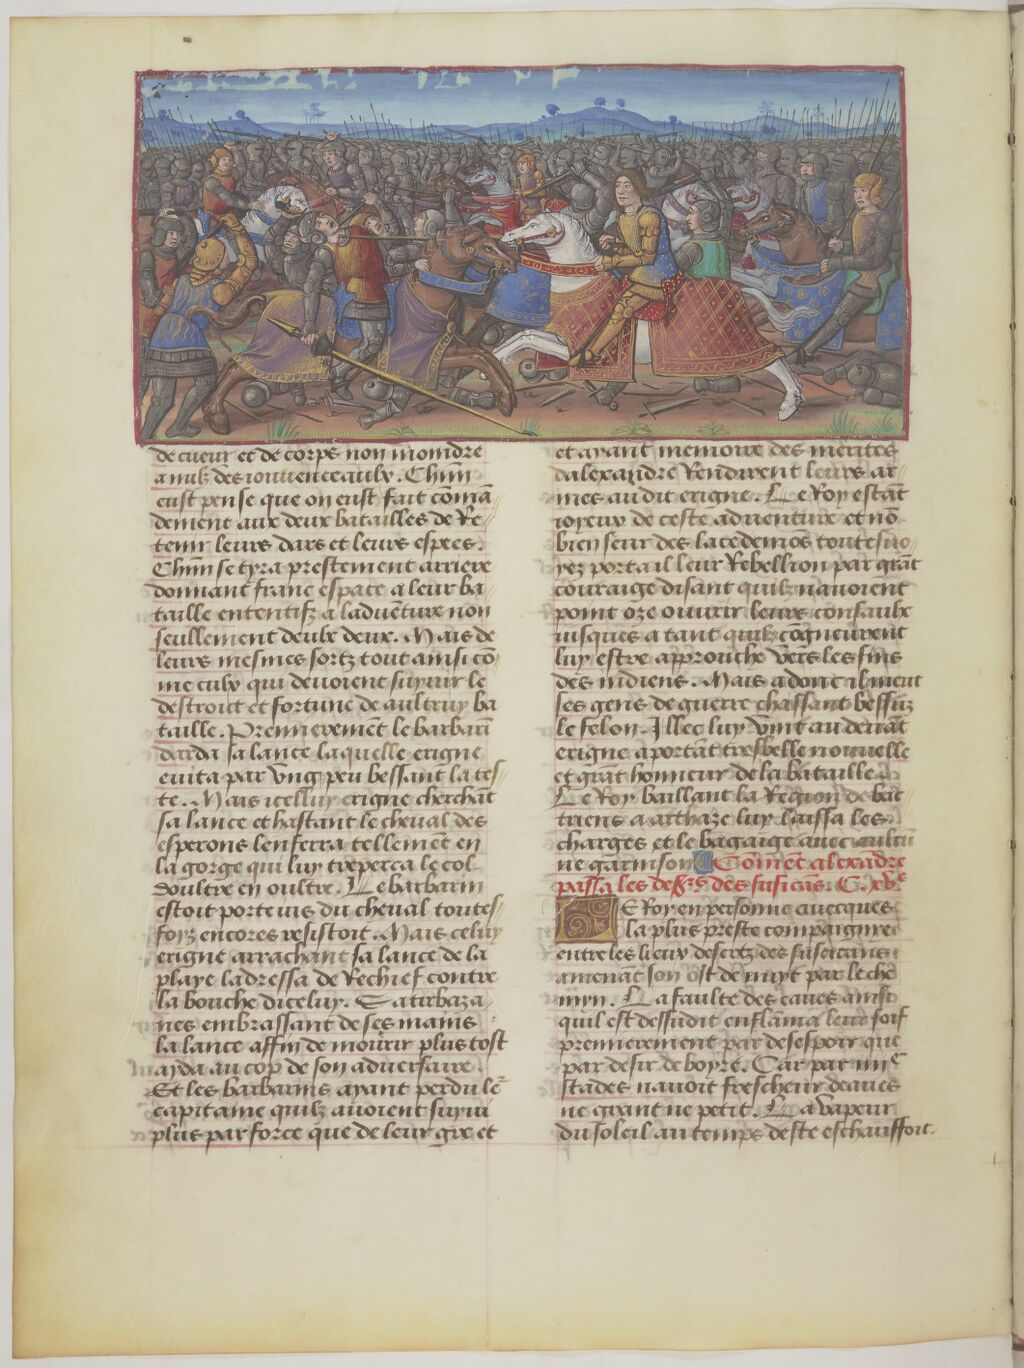 de cueur et de corps non moindre
a nulz des iouuenceaulx. Chun
eust pense que on eust fait comā
dement aux deux batailles de Re
tenir leurs dars et leurs espees.
Chun se tyra prestement arriere
donnant franc espace a leur ba
taille ententifz a laduēture non
seullement deulx deux. Mais de
leurs mesmes sortz tout ainsi cō
me culx qui deuoient suyuir le
destroit et fortune de aultruy ba
taille. Premierement le barbari
darda sa lance laquelle erigne
euita par vng peu bessant la tes
te. Mais icelluy erigne cherchāt
sa lance et hastant le cheual des
esperons lenferra tellement en
la gorge qui luy treperca le col
doultre en oultre. Le barbarin
estoit porte uis du cheual toutes
foyz encores resistoit. Mais celuy
erigne arrachant sa lance de la
playe ladressa de Rechief contre
la bouche diceluy. Satirbaza
nes embrassant de ses mains
la lance affin de mourir plus tost
ayda au cop de son aduersaire.
Et les barbarins ayant perdu le
capitaine quilz auoient suyui
plus par force que de leur gre et
et ayant memoire des merites
dalexandre Rendirent leurs ar
mes audit erigne. Le Roy estāt
ioyeux de ceste aduenture et nō
bien seur des lacedemōs toutesuo
yez porta il leur Rebellion par grāt
couraige disant quilz nauoient
point oze ouurir leurs consaulx
iusques a tant quilz cōgneurent
luy estre approuche vers les fins
des indiens. Mais adonc il meut
ses gens de guerre chassant bessuz
le felon. Illec luy vint au deuāt
erigne aportāt tresbelle nouuelle
et grāt honneur de la bataille
Le Roy baillant la Region de bac
triens a arthaze luy laissa les
charges et le bagaige auec aulcu
ne garnison Comēt alexādre
passa les des͛s des susicās. C. xve
LE Roy en personne auecques
la plus preste compaignie
entre les lieux desertz des susicains
amenāt son ost de nuyt par le che
myn. La faulte des eaues ainsi
quil est dessudit enflāma leur soif
premierement par desespoir que
par desir de boyre. Car par iiiie
stades nauoit frescheur deaues
ne grant ne petit. La vapeur
du soleil au temps deste eschauffoit.